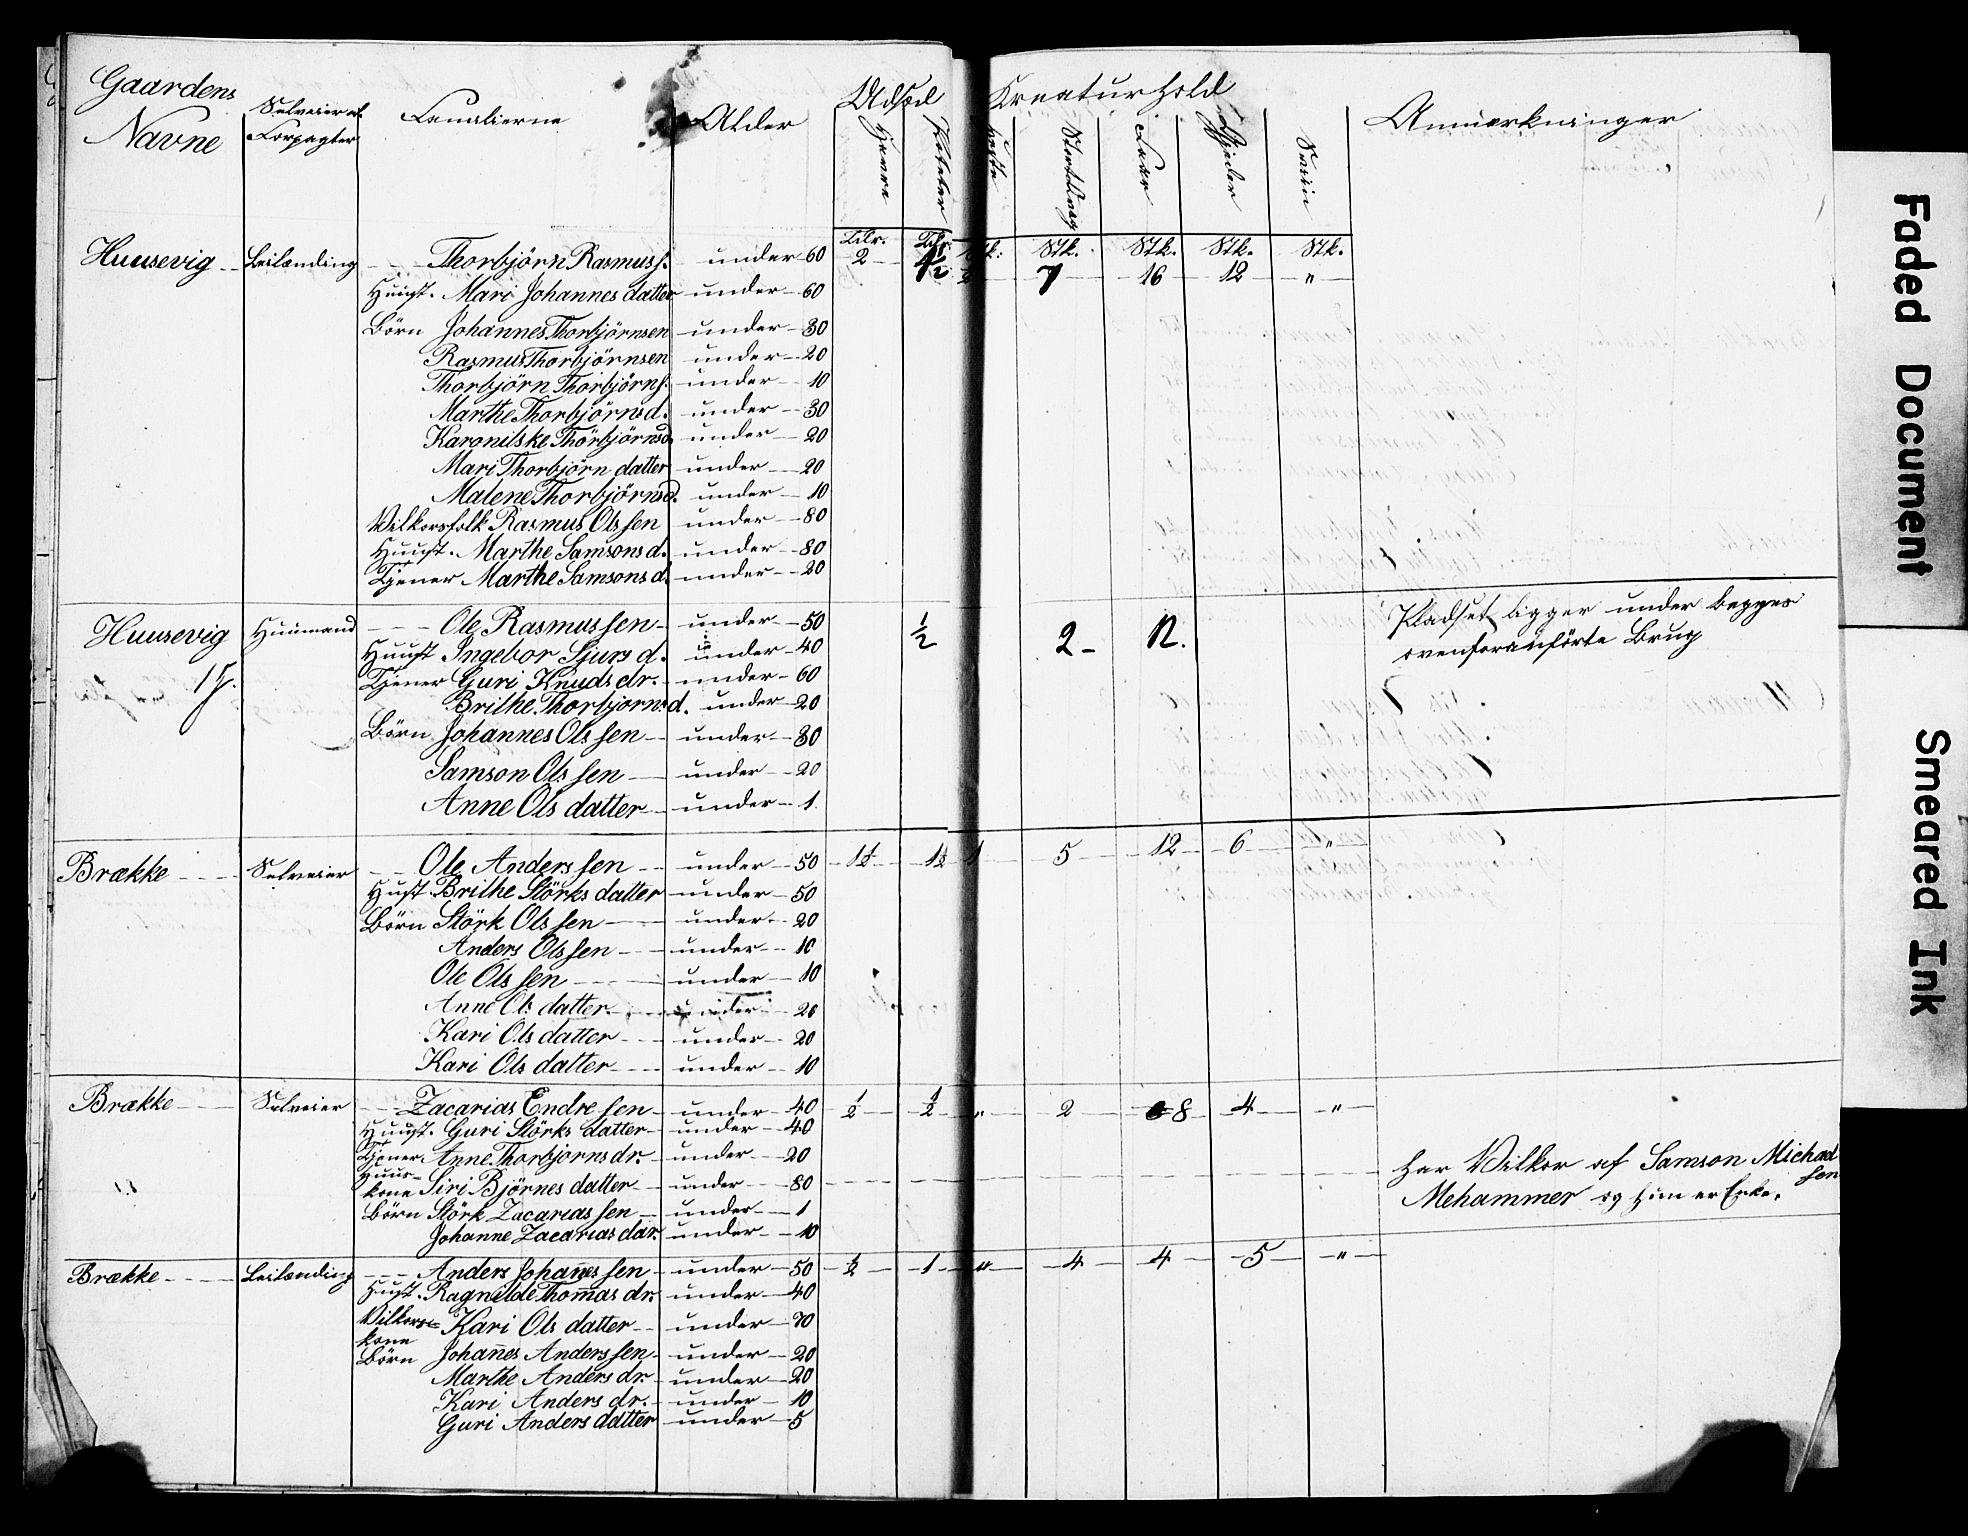 Gaardens Navne | Selveier el. Forpagter | Familierne | Alder | Udsæd | Kreaturhold | Anmærkninger
Havre | Poteter | Heste | Storfæ | Faar | Gjeder | Sviin
Tdr. | Tdr. | Stk. | Stk. | Stk. | Stk. | Stk.
Huusevig | Leilænding | Thorbjörn Rasmuss. | under 60 | 2 | 4½ | 2 | 7 | 16 | 12 | "
Huust. Mari Johannes datter | under 60
Börn Johannes Thorbjörnsen | under 30
Rasmus Thorbjörnsen | under 20
Thorbjörn Thorbjörns. | under 10
Marthe Thorbjörnsd. | under 30
Thorbjörnsd. | under 20
Mari Thorbjörn datter | under 20
Malene Thorbjörnsd. | under 10
Vilkorsfolk Rasmus Olssen | under 80
Huust. Marthe Samsonsd. | under 80
Tjener Marthe Samsonsd. | under 20
Huusevig | Huusmand | Ole Rasmussen | under 50 | ½ | 2 | 12. | Pladset ligger under begges
Huust Ingebor Sjursd. | under 40 | ovenforanförte Brug
Tjener Guri Knudsdr. | under 60
Brithe Thorbjornsd. | under 20
Börn Johannes Olssen | under 30
Samson Olssen | under 20
Anne Olsdatter | under 1
Brække | Selveier | Ole Anderssen | under 50 | 1½ | 1½ | 1 | 5 | 12 | 6 | "
Hust. Brithe Störksdatter | under 50
Börn Störk Olssen | under 20
Anders Olssen | under 10
Ole Olssen | under 10
Anne Olsdatter | under 20
Kari Olsdatter | under 20
Kari Olsdatter | under 10
Brække | Selveier | Zacarias Endresen | under 40 | ½ | ½ | " | 2 | 8 | 4 | "
Huust. Guri Störksdatter | under 40
Tjener Anne Thorbjornsdr. | under 20
Huuskone Siri Björnesdatter | under 80 | har Vilkor af Samson Michaelsen
Mehammer og hun er Enke.
Börn Störk Zacariassen | under 1
Johanne Zacariasdar. | under 10
Brække | Leilænding | Anders Johan̄essen | under 50 | ½ | 1 | " | 4 | 4 | 5 | "
Hust. Ragnilde Thom̄asdr. | under 40
Vilkorskone Kari Olsdatter | under 70
Börn Johan̄es Anderssen | under 20
Marthe Andersdr. | under 20
Kari Andersdr. | under 10
Guri Andersdatter | under 5
Faded Document
Smeared Ink